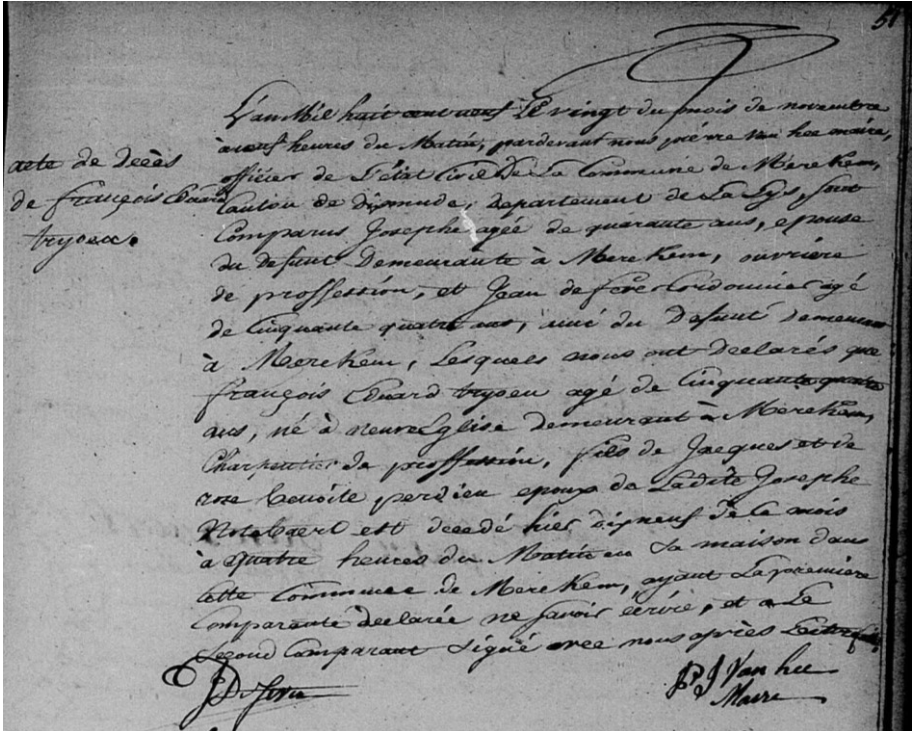 51
L'an Mil huit cent neuf Le vingt du mois de novembre
à neuf heures du Matin, pardevant nous pierre van hee maire,
officier de L'état Civil De La Commune de Merckem,
Canton de dixmude, departement de La Lys, sont
Comparus Josephe agée de quarante ans, epouse
du defunt Demeurante à Merckem, ouvriere
de proffession, et Jean de fever Cordonnier agé
de Cinquante quatre ans, ami du Defunt demeurant
à Merckem, Lesquels nous ont declarés que
françois Eduard tryoen agé de Cinquante quatre
ans, né à neuve Eglise demeurant à Merckem,
Charpentier de proffession, fils de Jacques et de
rose benoite perdieu epoux de Ladite Josephe
Notebaert est decedé hier dixneuf de ce mois
à quatre heures du Matin en Sa maison dans
Cette Commune de Merckem, ayant La premiere
Comparante declarée ne savoir écrire, et a Le
second Comparant Signé avec nous après Lecture
acte de decès
de françois Eduard
tryoen.
P J Van hee
Maire